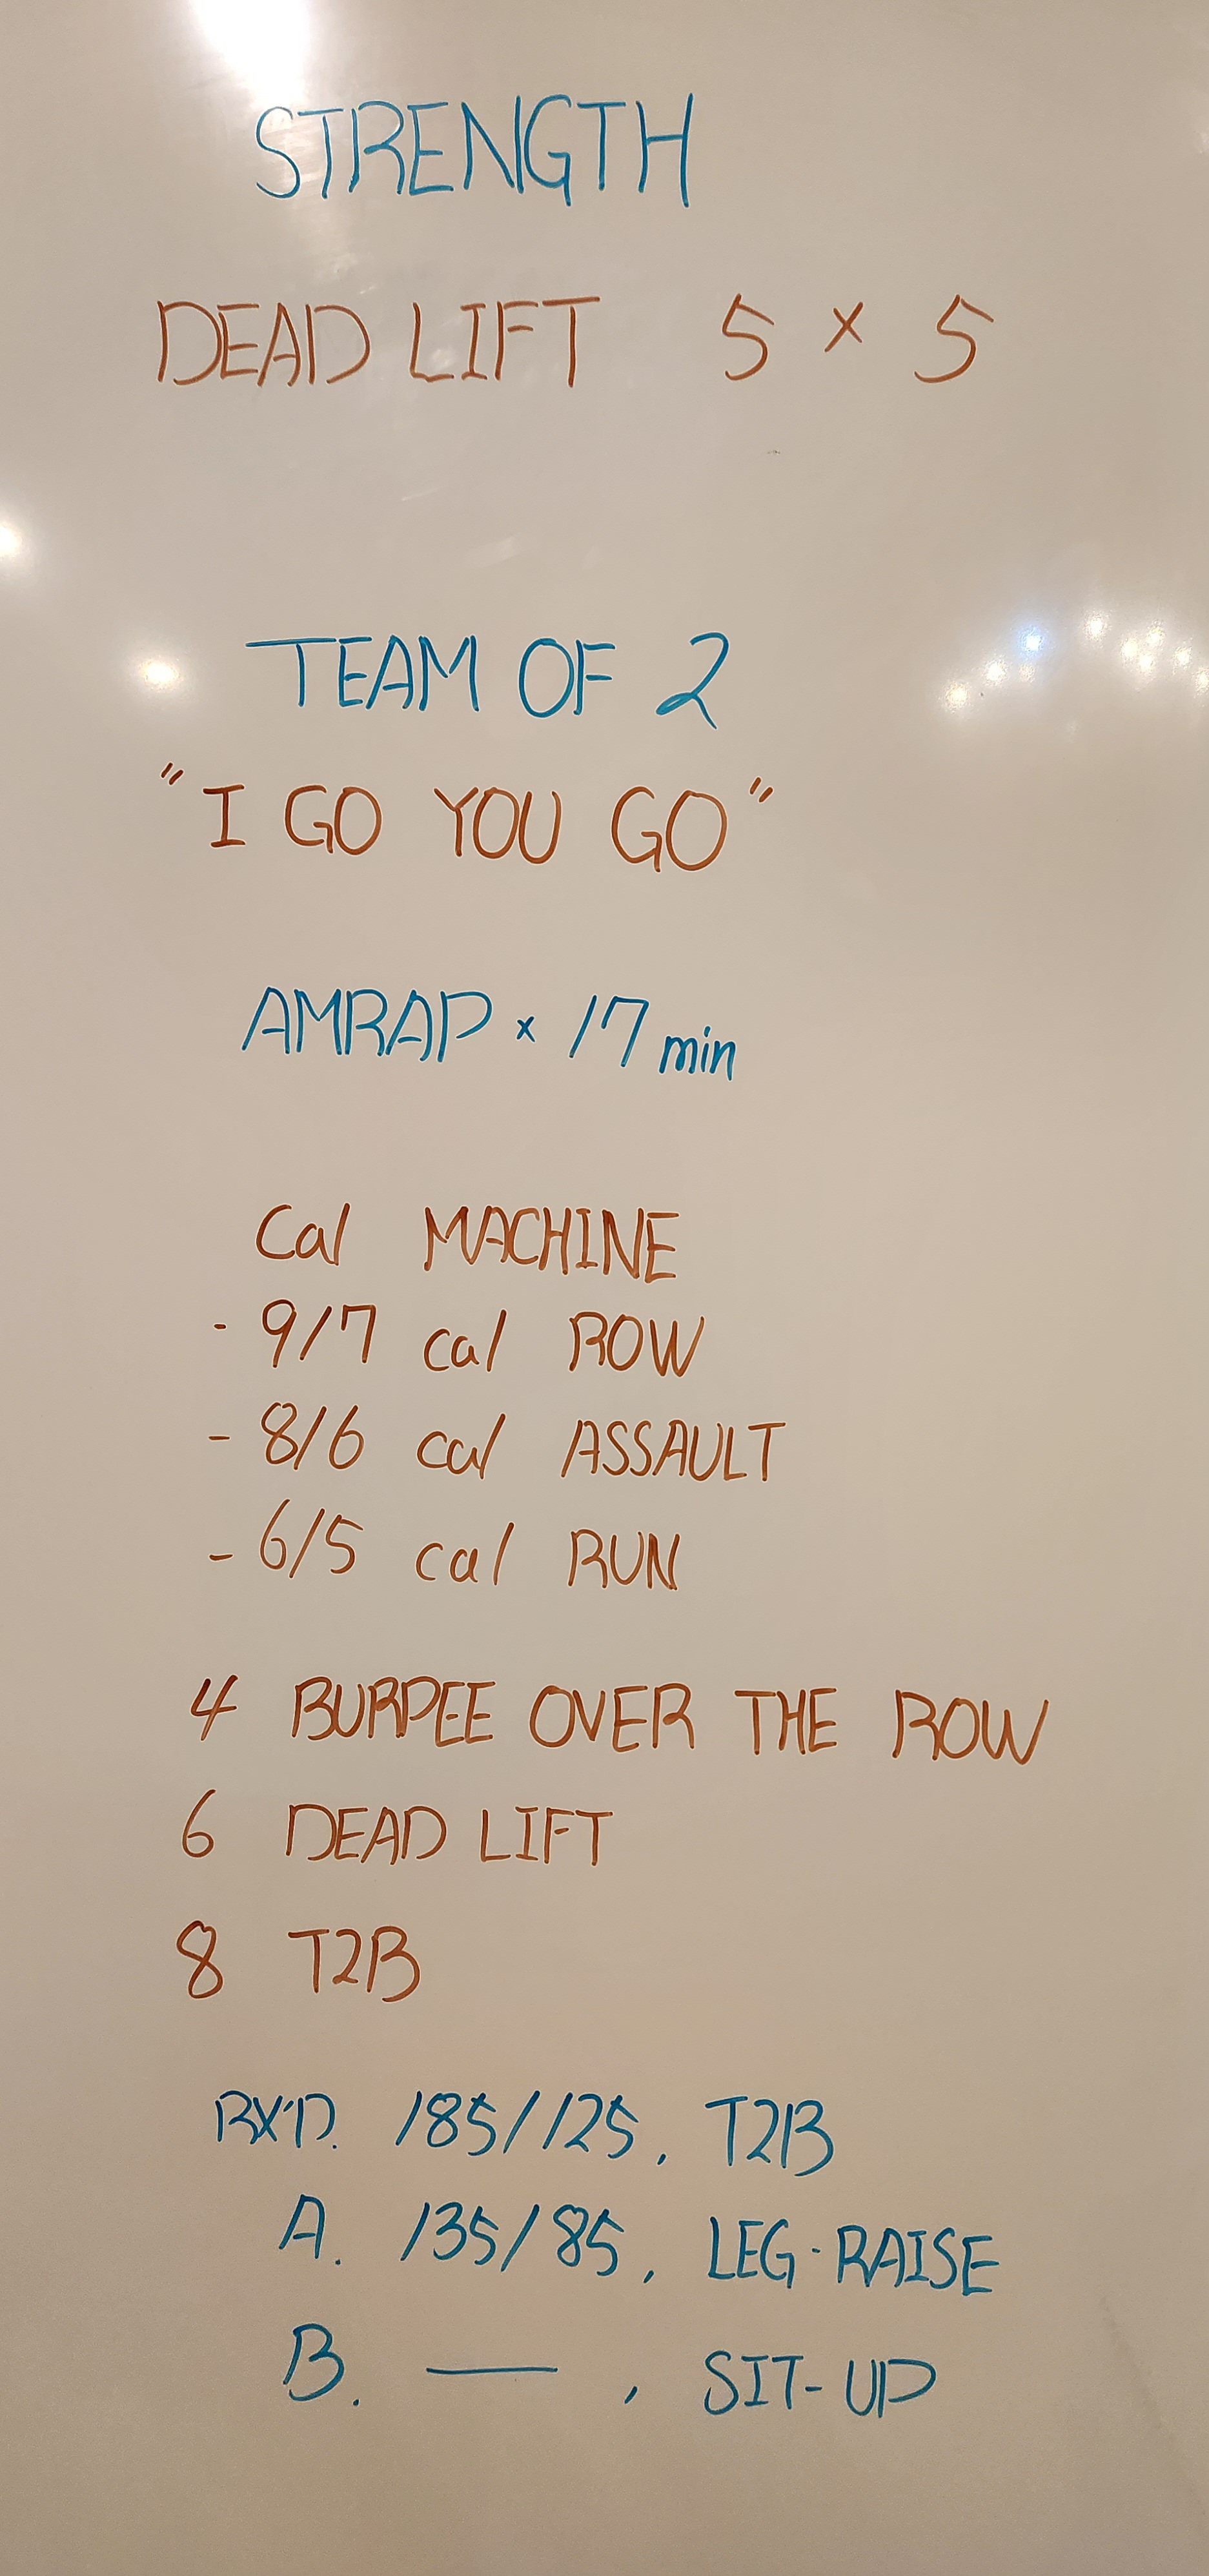 STRENGTH
DEAD LIFT 5 × 5
TEAM OF 2
"I GO YOU GO"
AMRAP × 17 min
Cal MACHINE
- 9/7 cal ROW
- 8/6 cal ASSAULT
- 6/5 cal RUN
4 BURPEE OVER THE ROW
6 DEAD LIFT
8 T2B
RX'D. 185/125, T2B
A. 135/85, LEG-RAISE
B. — , SIT-UP